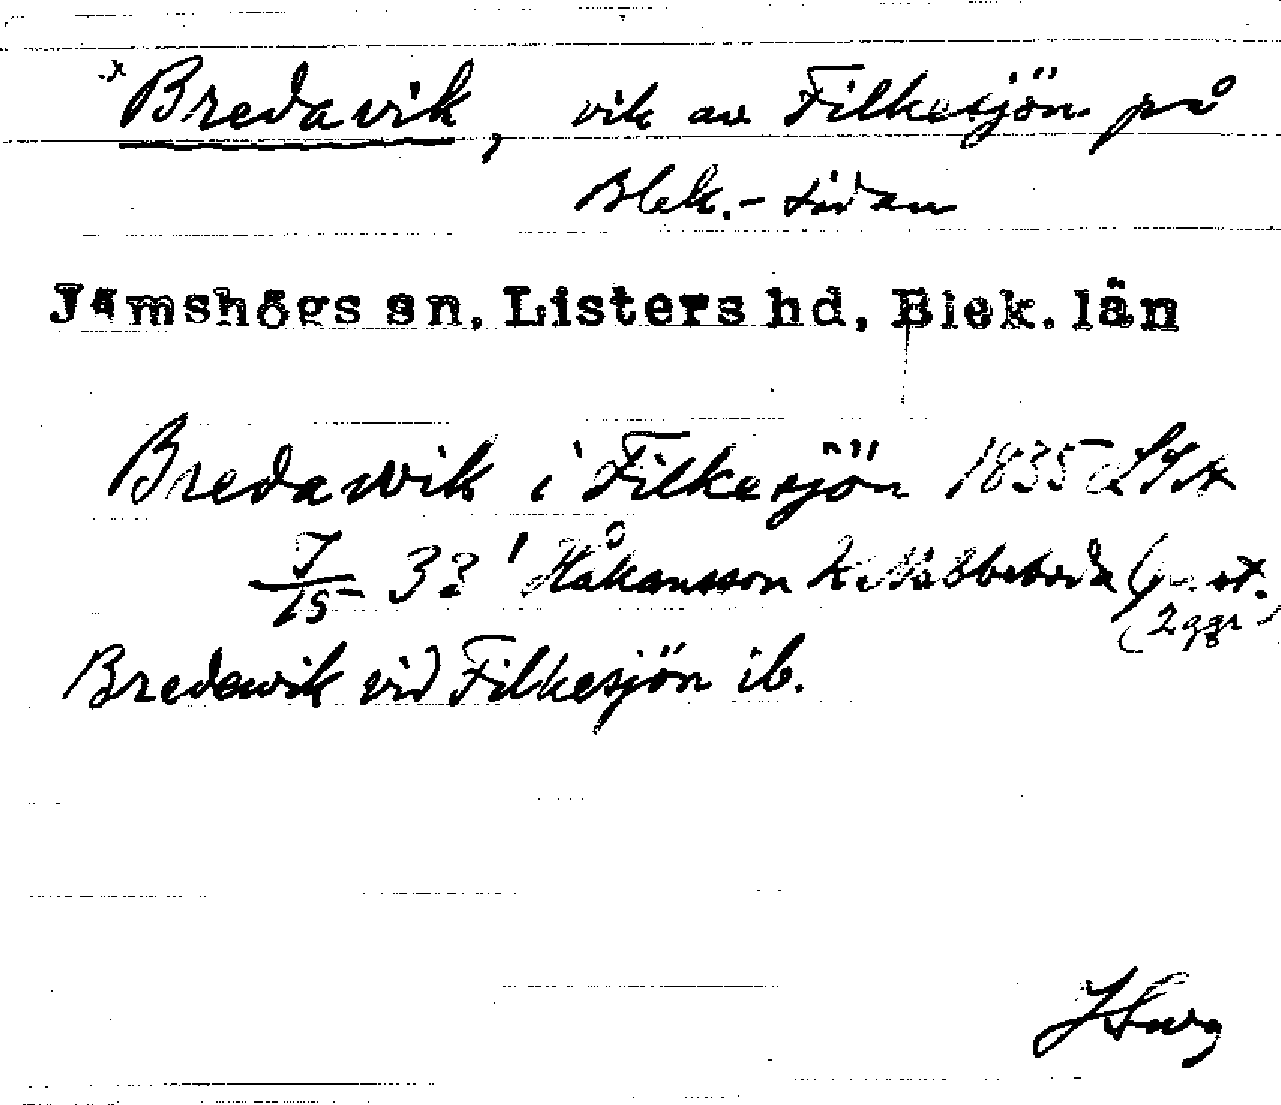 Bredavik, vik av Filkesjön på
Blek.-sidan
Jämshögs sn, Listers hd, Blek. län
Bredawik i Filkesjön 1835
33 Håkansson
(2 ggr)
Bredewik vid Filkesjön ib.